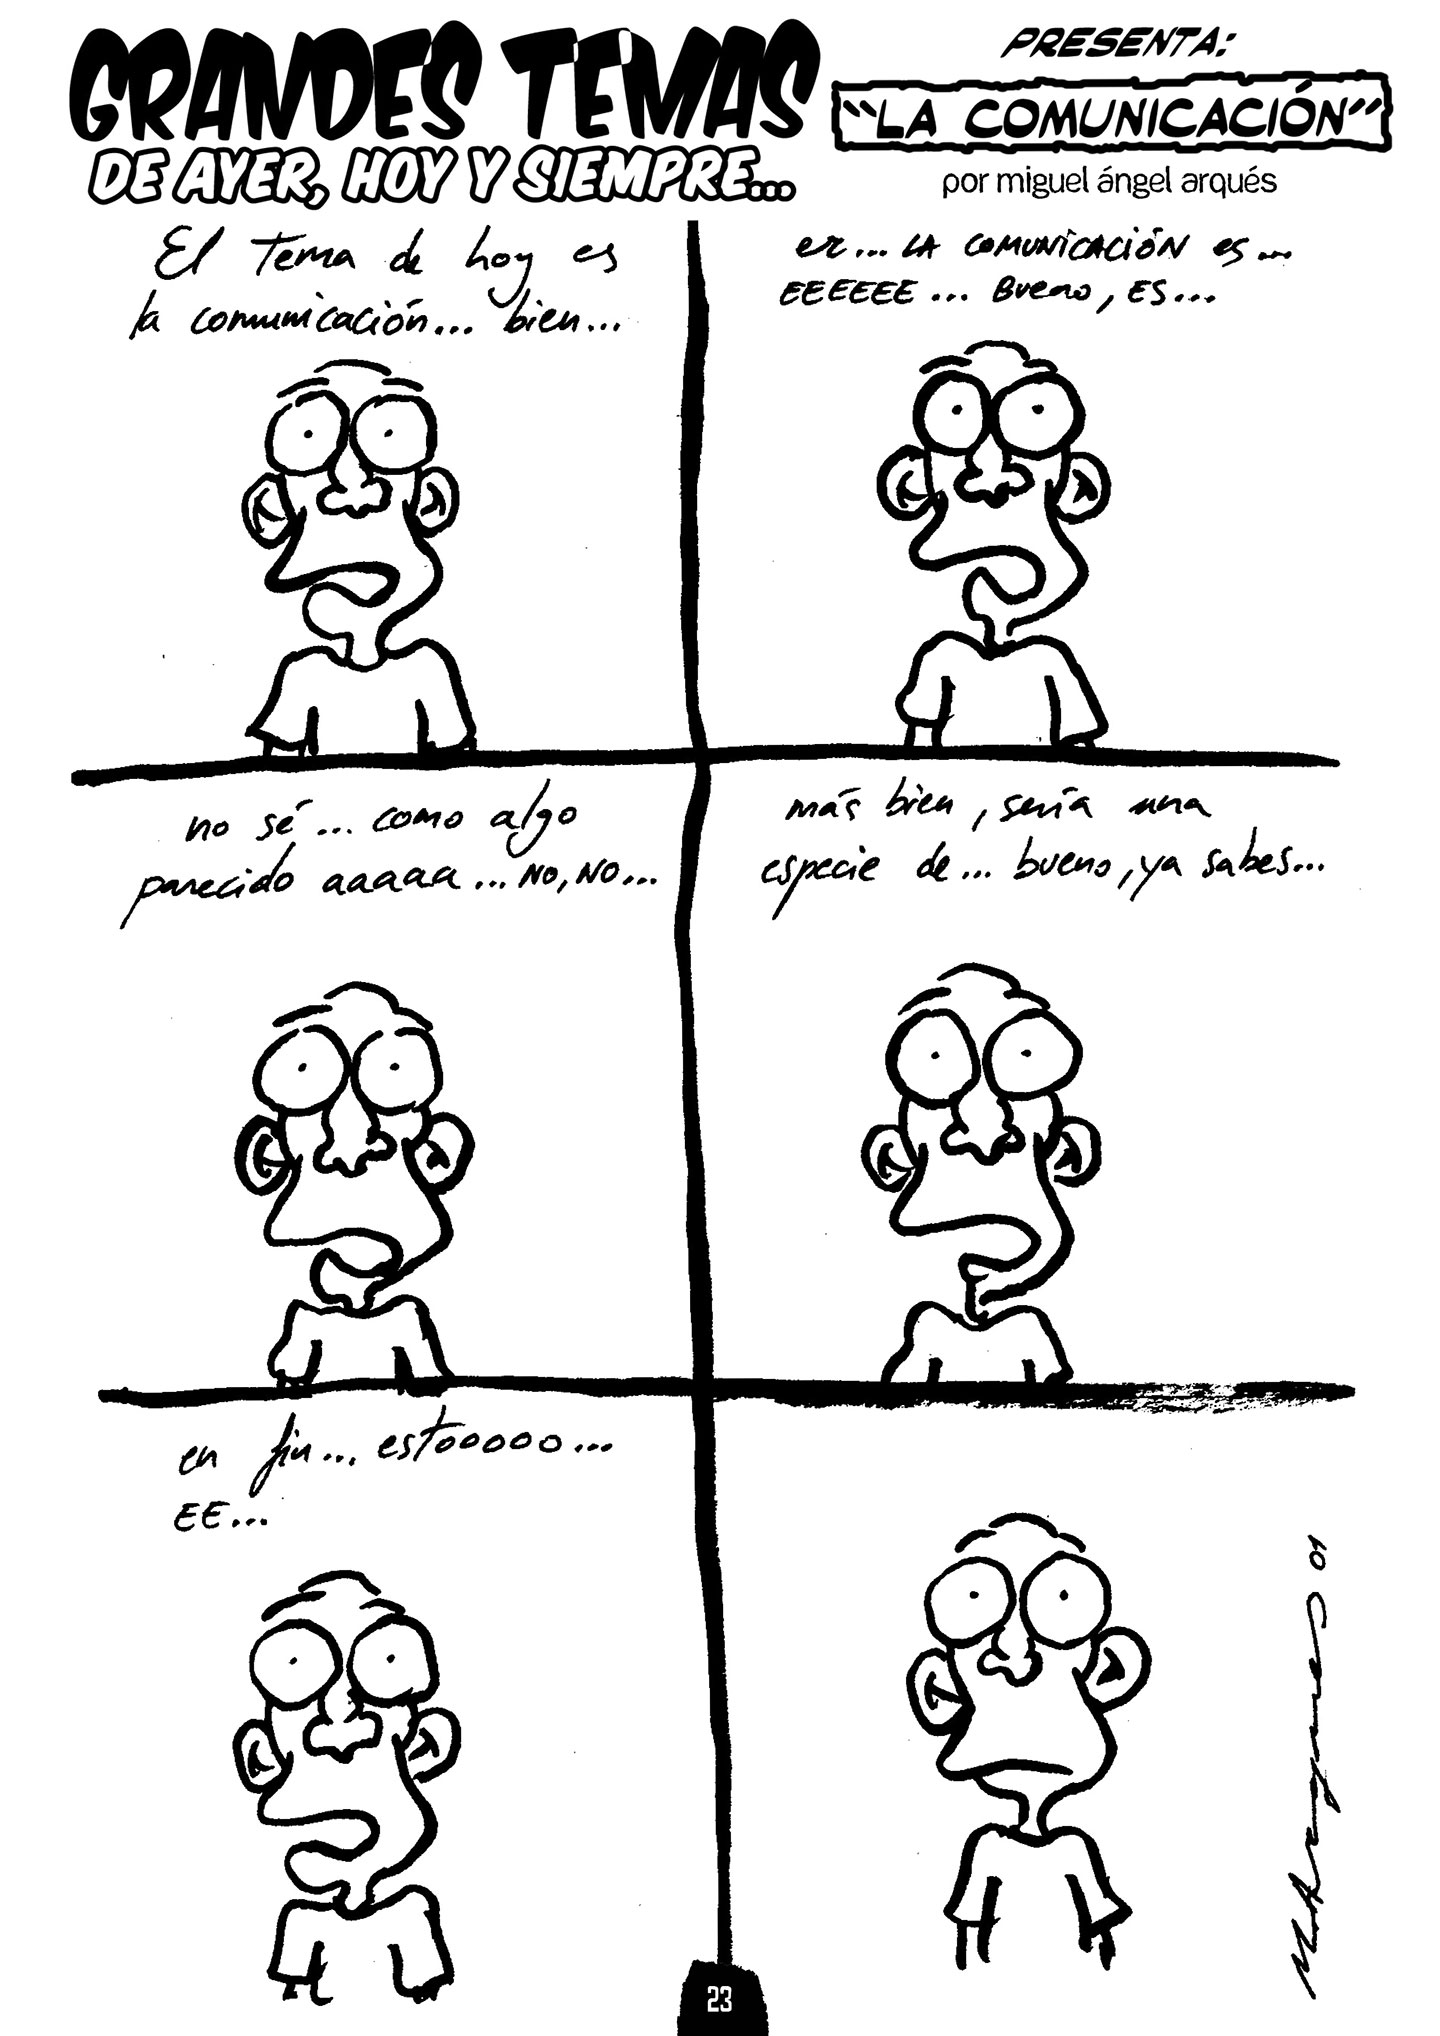 GRANDES TEMAS
DE AYER, HOY Y SIEMPRE...
PRESENTA:
"LA COMUNICACIÓN"
por miguel ángel arqués
El tema de hoy es
la comunicación... bien...
er... LA COMUNICACIÓN es...
EEEEEE... Bueno, ES...
no sé... como algo
parecido aaaaa... NO, NO...
más bien, sería una
especie de... bueno, ya sabes...
en fin... estooooo...
EE...
MAarques 01
23